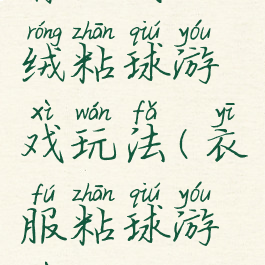 róng zhān qiú yóu
绒粘球游
xì wán fǎ yī
戏玩法(衣
fú zhān qiú yóu
服粘球游